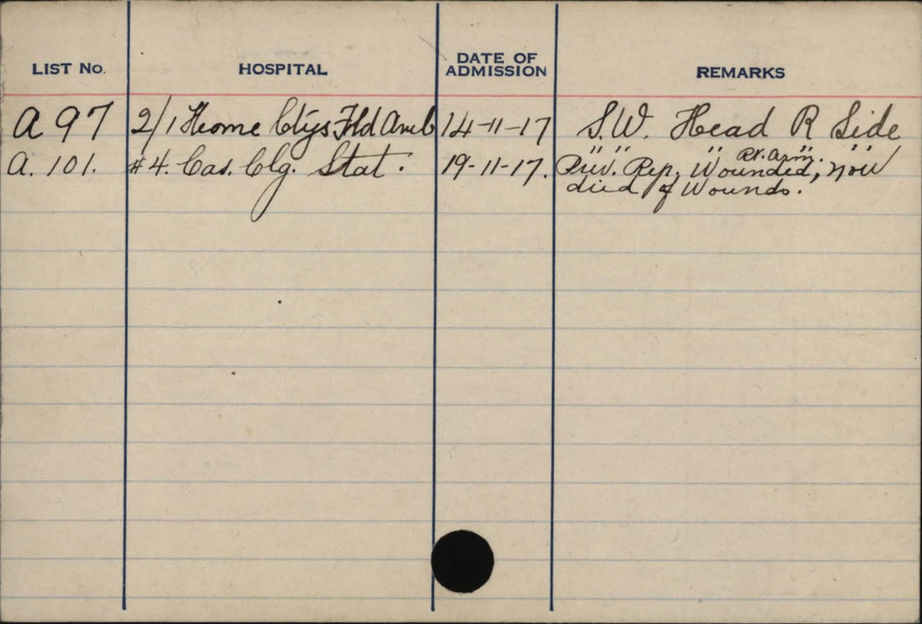 LIST No. HOSPITAL DATE OF ADMISSION REMARKS
A 97 2/1 Home Ctys Fld Amb 14-11-17 S.W. Head R Side
A. 101. #4. Cas. Clg. Stat. 19-11-17. Prev. Rep. Wounded, now
Rt. Arm.
died of Wounds.